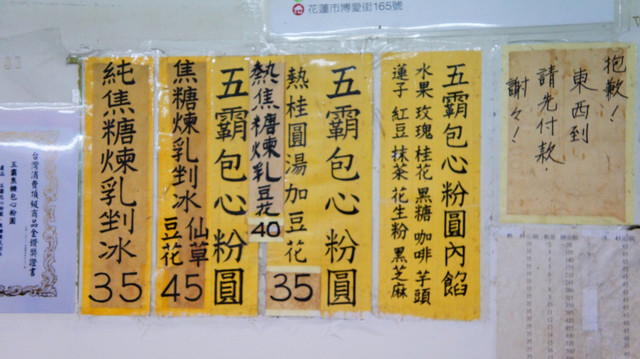 花蓮市博愛街165號
抱歉!
東西到
請先付款.
謝々!
五霸包心粉圓內餡
水果 玫瑰 桂花 黑糖 咖啡 芋頭
蓮子 紅豆 抹茶 花生粉 黑芝麻
五霸包心粉圓
熱桂圓湯加豆花
35
熱焦糖煉乳豆花
40
五霸包心粉圓
仙草
焦糖煉乳剉冰
豆花
45
純焦糖煉乳剉冰
35
台灣消費頂級商品金鑽獎證書
五霸焦糖包心粉圓